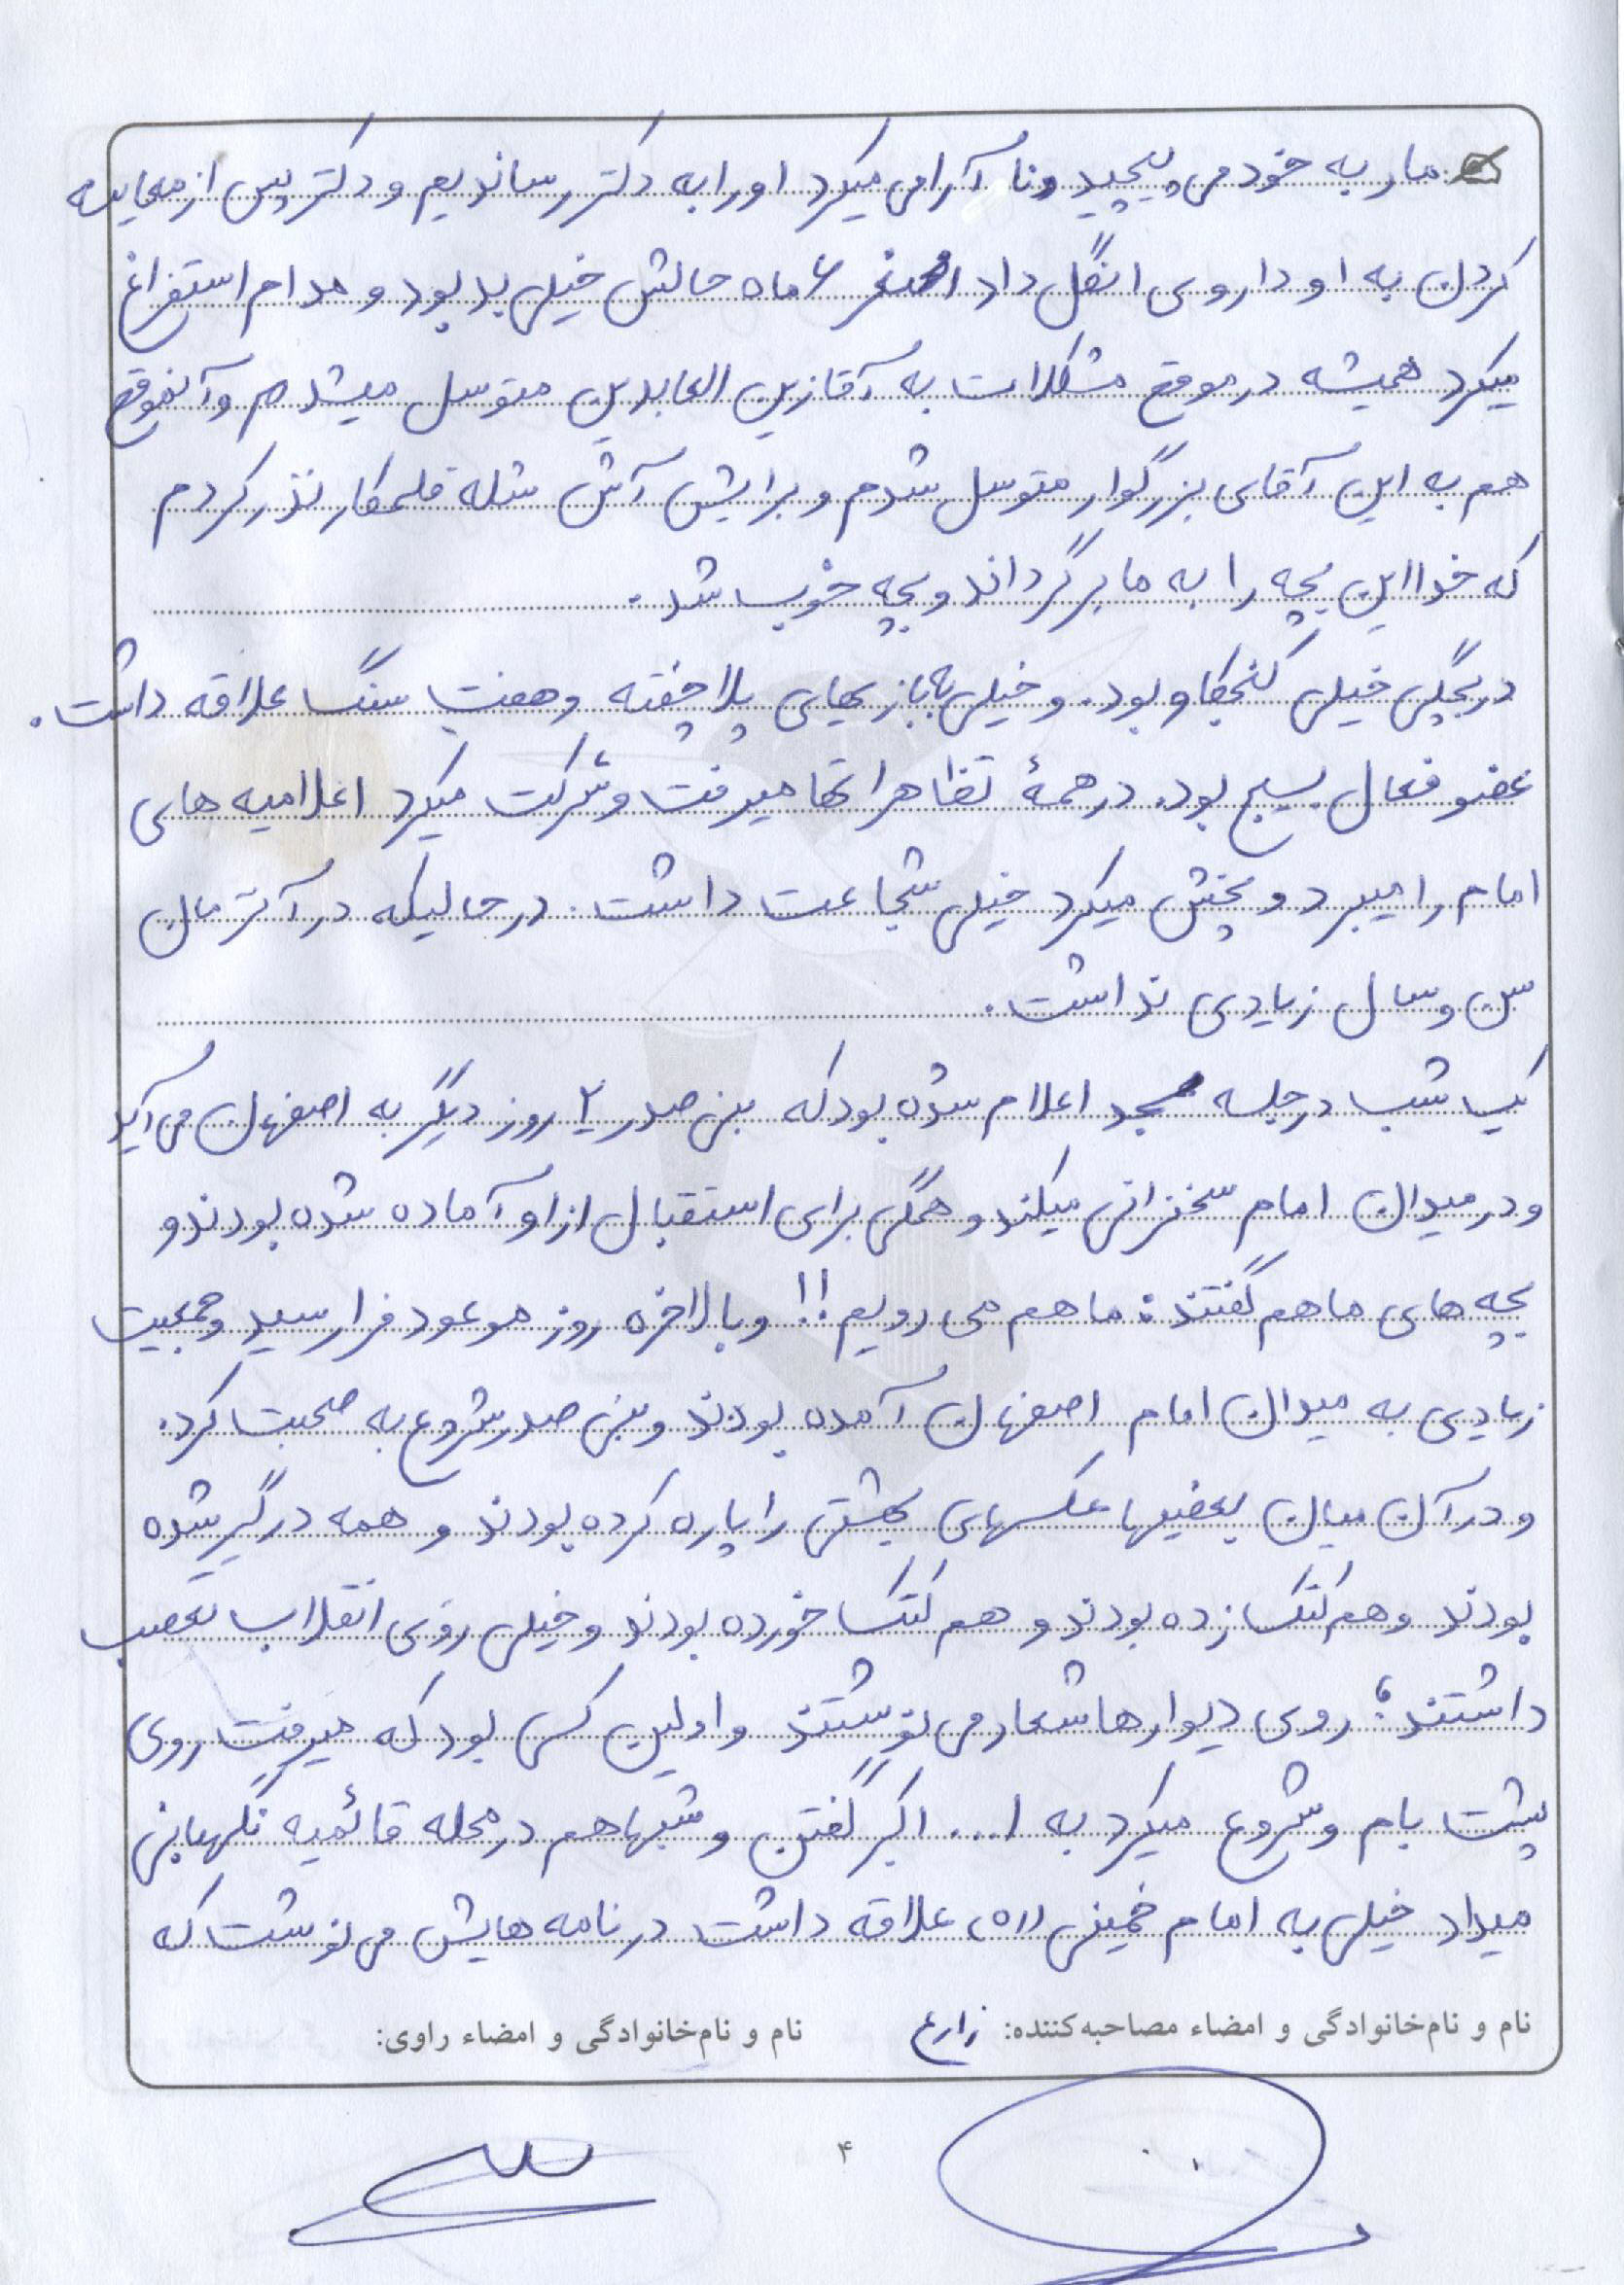 مار به خود می پیچید و نا آرامی میکرد او را به دکتر رساندیم و دکتر پس از معاینه
کردن به او داروی انگل داد اصغر ۶ ماه حالش خیلی بد بود و مدام استفراغ
میکرد همیشه در موقع مشکلات به آقا زین العابدین متوسل میشدم و آنموقع
هم به این آقای بزرگوار متوسل شدم و برایش آش شله قلمکار نذر کردم
که خدا این بچه را به ما برگرداند و بچه خوب شد.
در بچگی خیلی کنجکاو بود. و خیلی به بازیهای پلاچفته و هفت سنگ علاقه داشت.
عضو فعال بسیج بود. در همۀ تظاهراتها میرفت و شرکت میکرد اعلامیه های
امام را میبرد و پخش میکرد خیلی شجاعت داشت. در حالیکه در آنزمان
سن و سال زیادی نداشت.
یک شب در جلسه مسجد اعلام شده بود که بنی صدر ۲ روز دیگر به اصفهان می آید
و در میدان امام سخنرانی میکند و همگی برای استقبال از او آماده شده بودند و
بچه های ما هم گفتند: ما هم می رویم!! و بالاخره روز موعود فرا رسید و جمعیت
زیادی به میدان امام اصفهان آمده بودند و بنی صدر شروع به صحبت کرد.
و در آن میان بعضیها عکسهای بهشتی را پاره کرده بودند و همه درگیر شده
بودند و هم کتک زده بودند و هم کتک خورده بودند و خیلی روی انقلاب تعصب
داشتند؛ روی دیوارها شعار می نوشتند و اولین کسی بود که میرفت روی
پشت بام و شروع میکرد به ا... اکبر گفتن و شبها هم در محله قائمیه نگهبانی
میداد خیلی به امام خمینی (ره) علاقه داشت در نامه هایش می نوشت که
نام و نام‌خانوادگی و امضاء مصاحبه‌کننده: زارع نام و نام‌خانوادگی و امضاء راوی:
۴